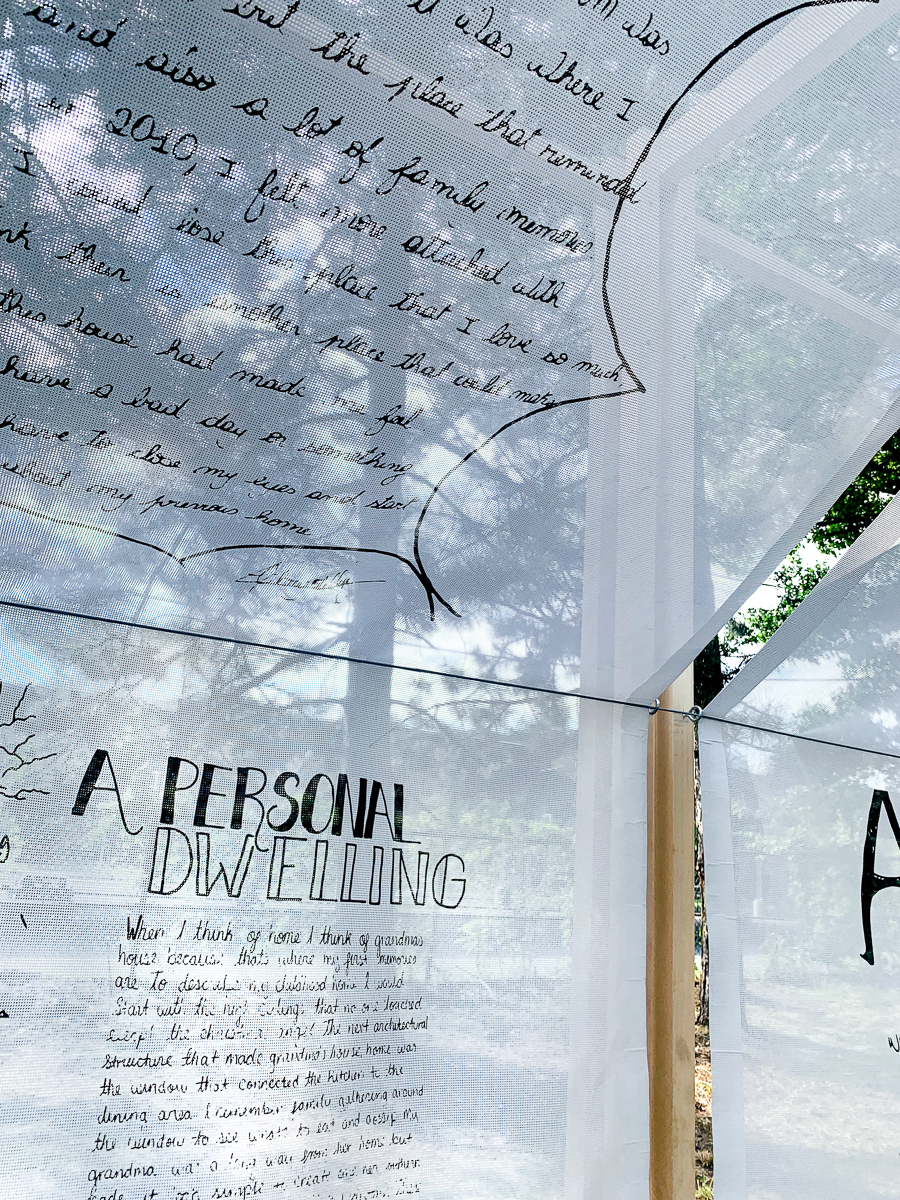 was
it was where I
but the place that reminded
and also a lot of family memories.
2010, I felt more attached with
I lose this place that I love so much,
is another place that could make
this house had made me feel
have a bad day or something
have to close my eyes and start
about my previous home
A PERSONAL
DWELLING
When I think of home I think of grandmas
house because that's where my first memories
are to describe my childhood home I would
start with the high ceilings that no one touched
except the christmas angel The next architectural
structure that made grandma's house, home was
the window that connected the kitchen to the
dining area. I remember family gathering around
the window to see what's to eat and gossip My
grandma was a long way from her home but
made it simple to create
A